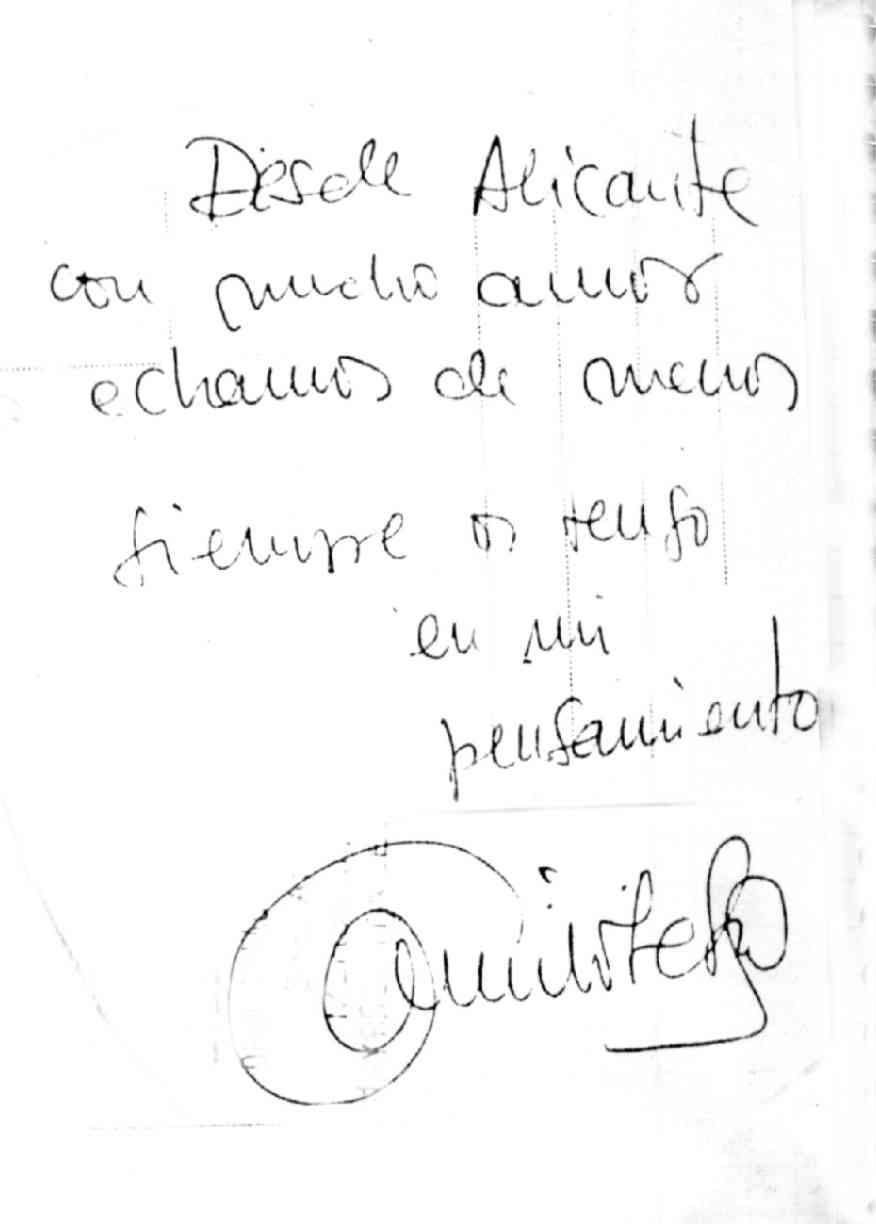 Desde Alicante
con mucho amor
echamos de menos
siempre os tengo
en mi
pensamiento